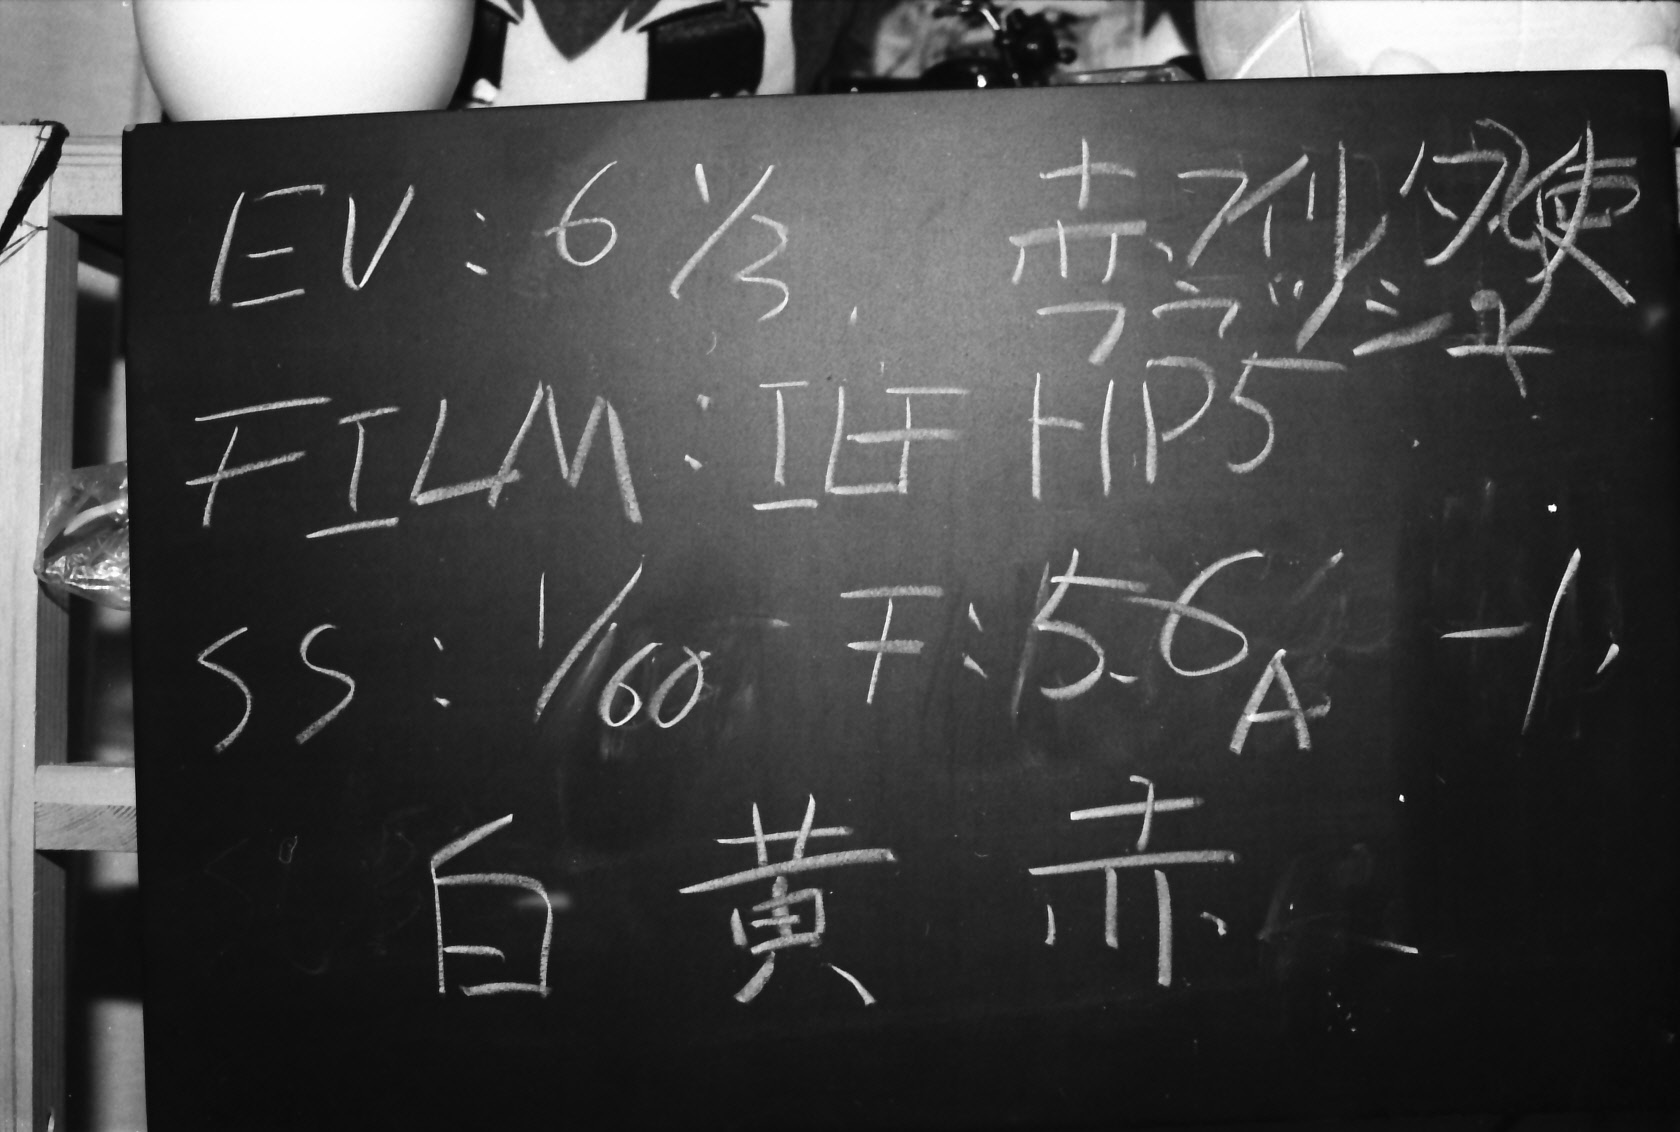 EV: 6 1/3 赤フィルタ使
フラッシュ
FILM: ILF HP5
SS: 1/60 F: 5.6A -1
白 黄 赤